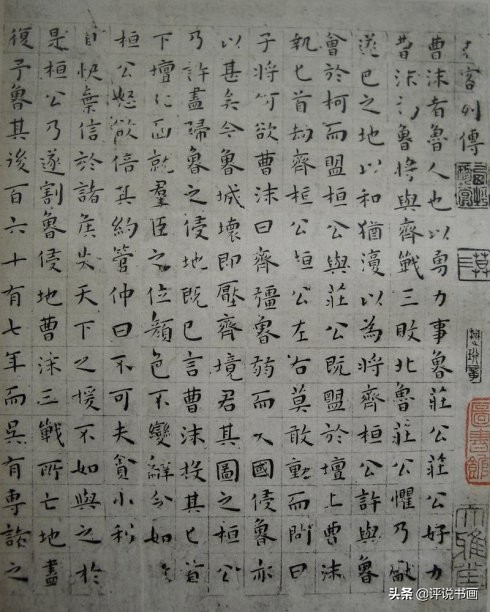 客列傳
曹沫者魯人也以勇力事魯莊公莊公好力
曹沫魯將與齊戰三敗北魯莊公懼乃獻
遂邑之地以和猶復以為將齊桓公許與魯
會於柯而盟桓公與莊公既盟於壇上曹沫
執匕首劫齊桓公桓公左右莫敢動而問曰
子將何欲曹沫曰齊彊魯弱而大國侵魯亦
以甚矣今魯城壞即壓齊境君其圖之桓公
乃許盡歸魯之侵地既已言曹沫投其匕首
下壇北面就羣臣之位顏色不變辭令如
桓公怒欲倍其約管仲曰不可夫貪小利
自快棄信於諸矦失天下之援不如與之於
是桓公乃遂割魯侵地曹沫三戰所亡地盡
復予魯其後百六十有七年而吳有專諸之
圖書館
头条 @评说书画